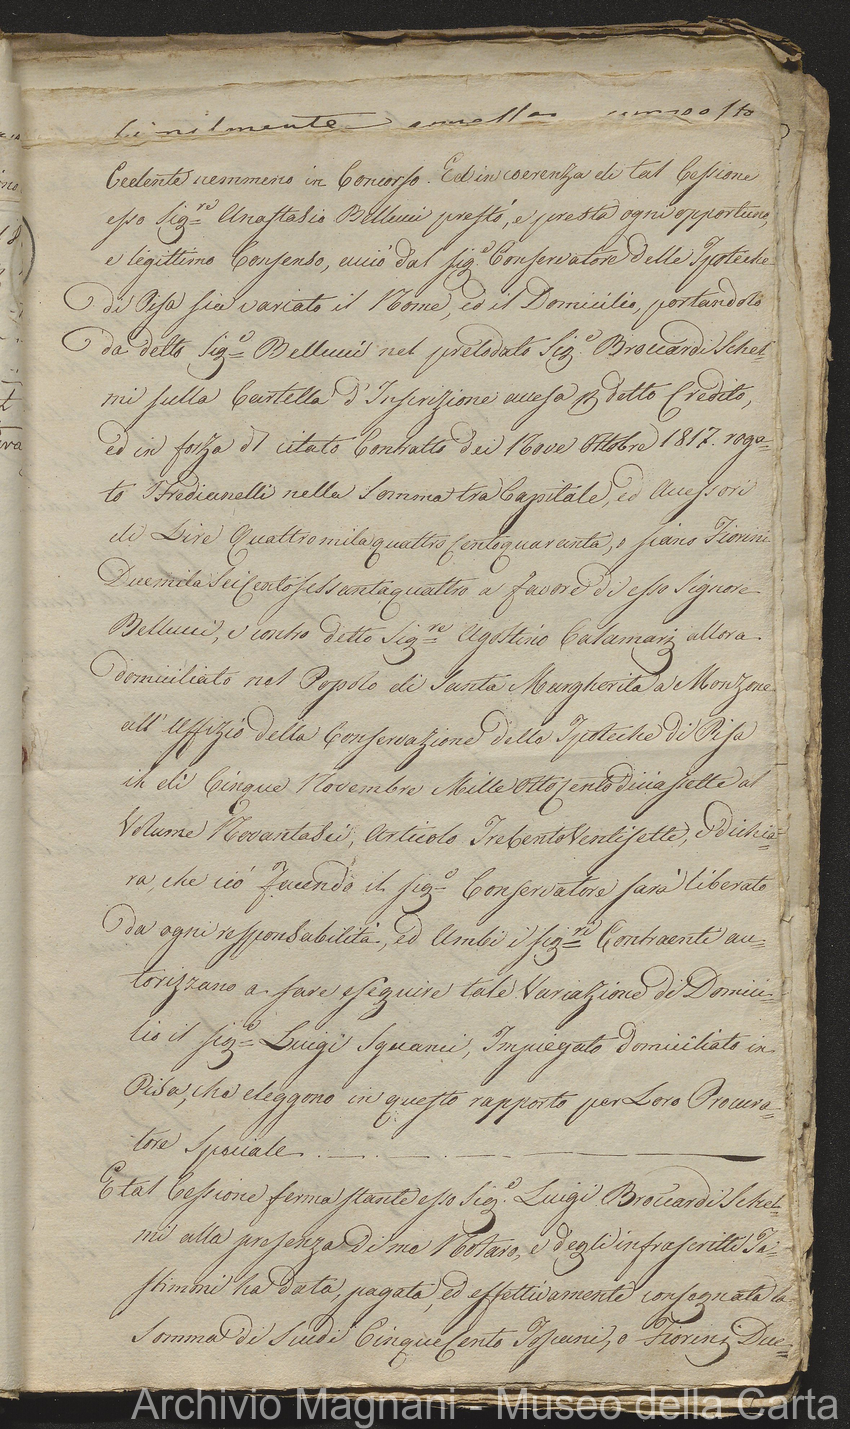 Cedente nemmeno in Concorso. Ed in coerenza di tal Cessione
esso Sig.re Anastasio Bellucci prestò, e presta ogni opportuno,
e legittimo Consenso, acciò dal Sig.e Conservatore delle Ipoteche
di Pisa sia variato il Nome, ed il Domicilio, portandolo
da detto Sig.e Bellucci nel prelodato Sig.e Broccardi Schel=
mi sulla Cartella d'Inscrizione accesa p detto Credito,
ed in forza di citato Contratto dei Nove Ottobre 1817. roga=
to Bredianelli nella Somma tra Capitale, ed Accessori
di Lire Quattromilaquattrocentoquaranta, o siano Fiorini
DuemilaSeiCentosessantaquattro a favore di esso Signore
Bellucci, e contro detto Sig.re Agostino Calamarij allora
domiciliato nel Popolo di Santa Margherita a Monzone
all'Uffizio della Conservazione delle Ipoteche di Pisa
in di Cinque Novembre MilleOttoCentoDiciassette al
Volume NovantaSei, Articolo TreCentoVentisette, e dichia=
ra, che ciò facendo il Sig.e Conservatore sarà liberato
da ogni responsabilità, ed Ambi i Sig.ri Contraenti au=
torizzano a fare eseguire tale Variazione di Domici=
lio il Sig.e Luigi Squanci, Impiegato domiciliato in
Pisa, che eleggono in questo rapporto per Loro Procura=
tore Speciale
E tal Cessione ferma stante esso Sig.e Luigi Broccardi Schel=
mi alla presenza di me Notaro, e degli infrascritti Te=
stimoni ha data, pagata, ed effettivamente consegnata la
Somma di Scudi CinqueCento Toscani, o Fiorini Due=
Archivio Magnani - Museo della Carta